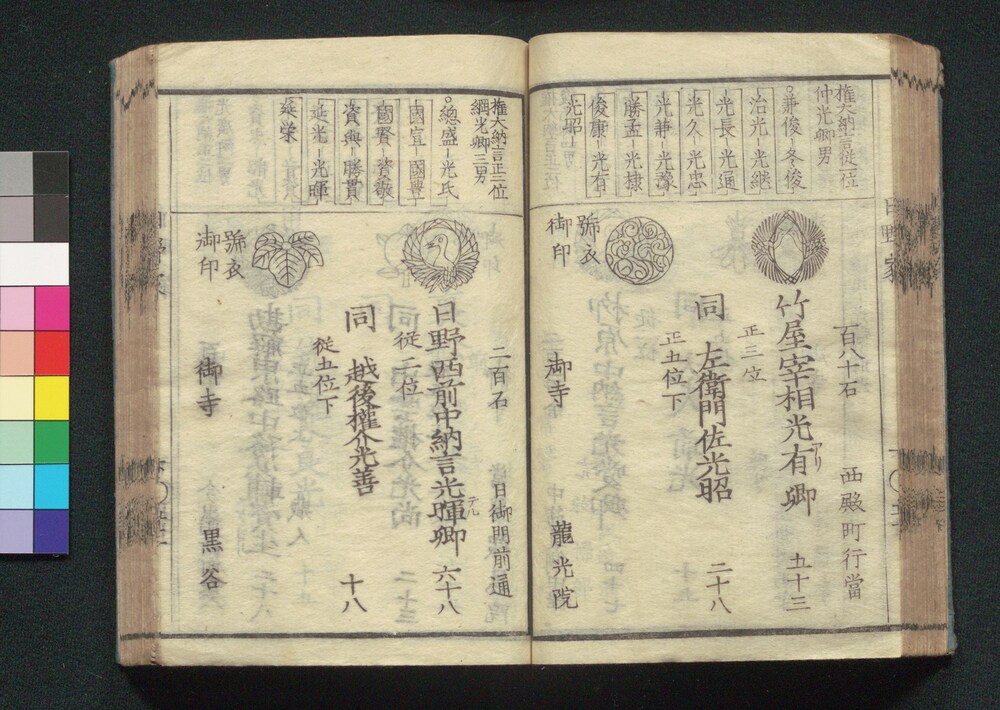 日野家
権大納言従一位
仲光卿男
兼俊 冬俊
治光 光継
光長 光通
光久 光忠
光兼 光豫
勝孟 光棣
俊康 光有
光昭
百八十石 西殿町行當
竹屋宰相光有卿 五十三
アリ
正三位
同 左衛門佐光昭 二十八
正五位下
號衣
御印
御寺 龍光院
権大納言正三位
綱光卿三男
總盛 光氏
國宣 國專
國賢 資敬
資興 勝貫
延光 光暉
延榮
二百石 日御門前通
日野西前中納言光暉卿 六十八
テル
従二位
同 越後権介光善 十八
従五位下
號衣
御印
御寺 黒谷